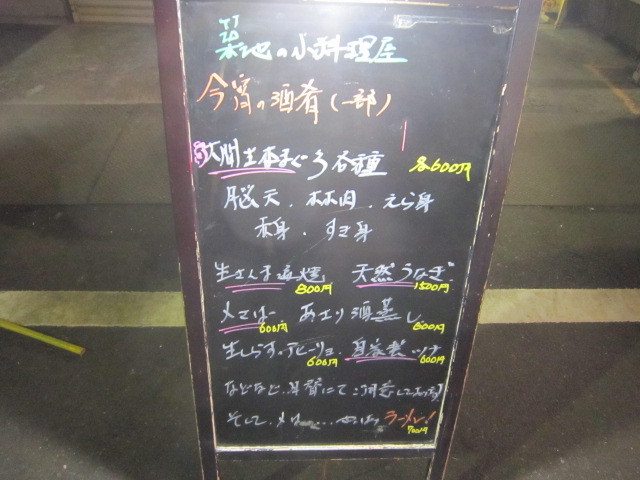 築地の小料理屋
今宵の酒肴(一部)
大間生本まぐろ各種 各600円
脳天、ホホ肉、えら身
赤身、すき身
生さんま塩焼 800円 天然うなぎ 1500円
〆さば 600円、あさり酒蒸し 600円
生しらすのアヒージョ 600円、自家製ツナ 600円
などなど
そして、〆は…やっぱりラーメン! 700円